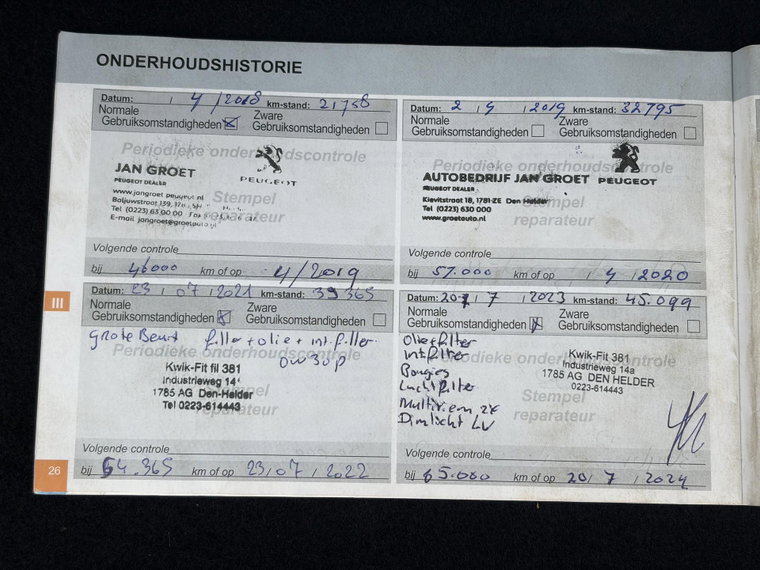 ONDERHOUDSHISTORIE
Datum: / 4 / 2018 km-stand: 21758
Normale Gebruiksomstandigheden
Zware Gebruiksomstandigheden
Periodieke onderhoudscontrole
JAN GROET
PEUGEOT DEALER
PEUGEOT
www.jangroet.peugeot.nl
Stempel
Baljuwstraat 139, 178
Tel (0223) 63 00 00
reparateur
E-mail jangroet@groetauto.nl
Volgende controle
bij 46000 km of op 4/2019
Datum: 2 / 9 / 2019 km-stand: 32795
Normale Gebruiksomstandigheden
Zware Gebruiksomstandigheden
Periodieke onderhoudscontrole
AUTOBEDRIJF JAN GROET
PEUGEOT DEALER
PEUGEOT
Kievitstraat 18, 1781-ZE Den Helder
Stempel
Tel (0223) 630 000
reparateur
www.groetauto.nl
Volgende controle
bij 57.000 km of op / 4 / 2020
III
Datum: 23 / 07 / 2021 km-stand: 39365
Normale Gebruiksomstandigheden
Zware Gebruiksomstandigheden
Grote Beurt filter + olie + int.filter
0W30P
Periodieke onderhoudscontrole
Kwik-Fit fil 381
Industrieweg 14
Stempel
1785 AG Den-Helder
Tel 0223-614443
reparateur
Volgende controle
bij 64.365 km of op 23 / 07 / 2022
Datum: 20 / 7 / 2023 km-stand: 45.099
Normale Gebruiksomstandigheden
Zware Gebruiksomstandigheden
Olie+filter
Intfilter
Bougies
Luchtfilter
Multiriem 2x
Dimlicht LV
Periodieke onderhoudscontrole
Kwik-Fit 381
Industrieweg 14a
1785 AG DEN HELDER
0223-614443
Stempel
reparateur
Volgende controle
bij 65.000 km of op 20 / 7 / 2024
26